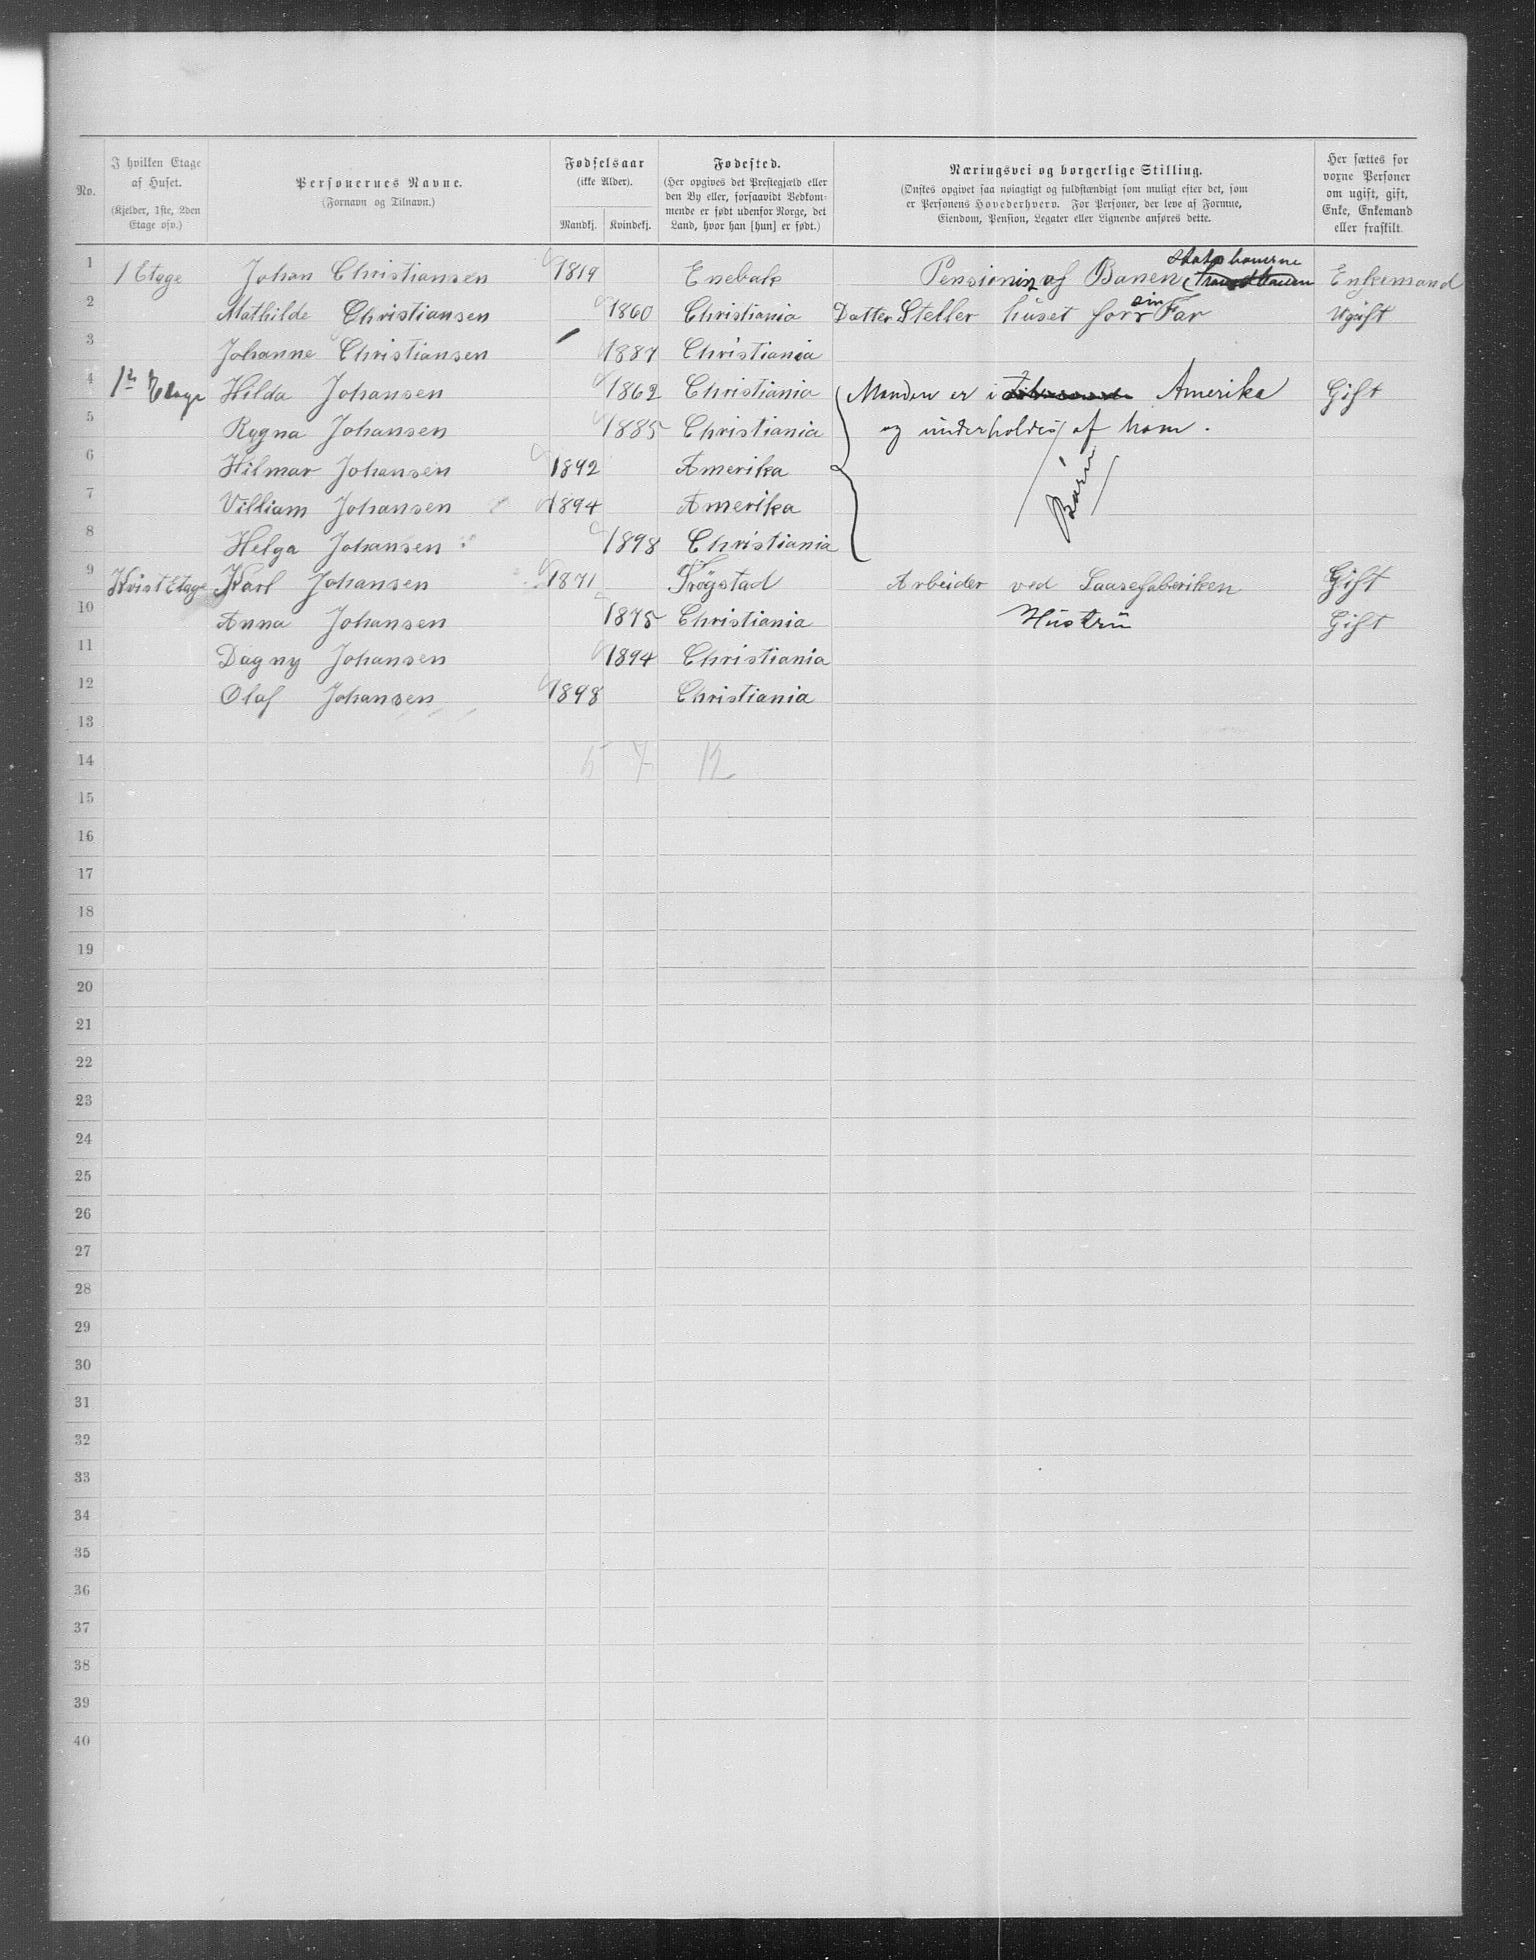 No.
I hvilken Etage af Huset.
(Kjelder, 1ste, 2den Etage osv.)
Personernes Navne.
(Fornavn og Tilnavn.)
Fødselsaar
(ikke Alder).
Mandkj. Kvindekj.
Fødested.
(Her opgives det Prestegjæld eller den By eller, forsaavidt Vedkommende er født udenfor Norge, det Land, hvor han [hun] er født.)
Næringsvei og borgerlige Stilling.
(Ønskes opgivet saa nøiagtigt og fuldstændigt som muligt efter det, som er Personens Hovederhverv. For Personer, der leve af Formue, Eiendom, Pension, Legater eller Lignende anføres dette.
Her sættes for voxne Personer om ugift, gift, Enke, Enkemand eller fraskilt.
Statsbanerne
1 1 Etage Johan Christiansen 1819 Enebak Pensionin af Banen Enkemand
2 Mathilde Christiansen 1860 Christiania Datter Steller huset for sin Far Ugift
3 Johanne Christiansen 1887 Christiania
4 1ste Etage Hilda Johansen 1862 Christiania Manden er i Amerika Gift
5 Ragna Johansen 1885 Christiania og underholdes af ham.
6 Hilmar Johansen 1892 Amerika
7 Villiam Johansen 1894 Amerika Børn
8 Helga Johansen 1898 Christiania
9 Kvist Etage Karl Johansen 1871 Trögstad Arbeider ved Laasefaberiken Gift
10 Anna Johansen 1875 Christiania Hustrü Gift
11 Dagny Johansen 1894 Christiania
12 Olaf Johansen 1898 Christiania
13
14 5 7 12
15
16
17
18
19
20
21
22
23
24
25
26
27
28
29
30
31
32
33
34
35
36
37
38
39
40